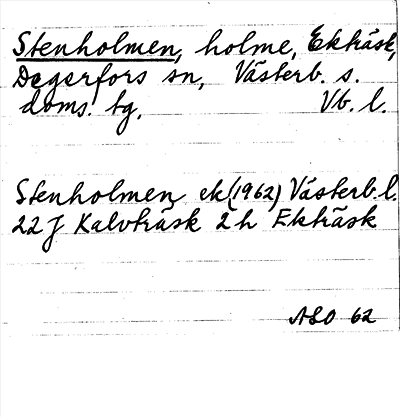 Stenholmen, holme, Ekträsk,
Degerfors sn, Västerb. s.
doms. tg. Vb. l.
Stenholmen ek (1962) Västerb. l.
22 J Kalvträsk 2 h Ekträsk
ALO 62